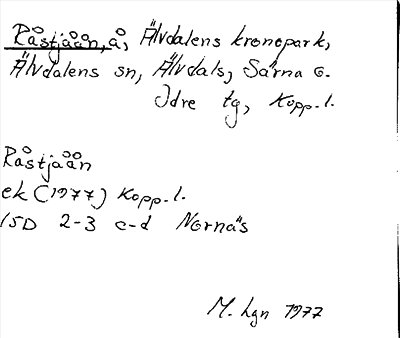 Råstjåån, å, Älvdalens kronopark,
Älvdalens sn, Älvdals, Särna o.
Idre tg, Kopp.l.
Råstjåån
ek (1977) Kopp.l.
15D 2-3 c-d Nornäs
M. Lgn 1977